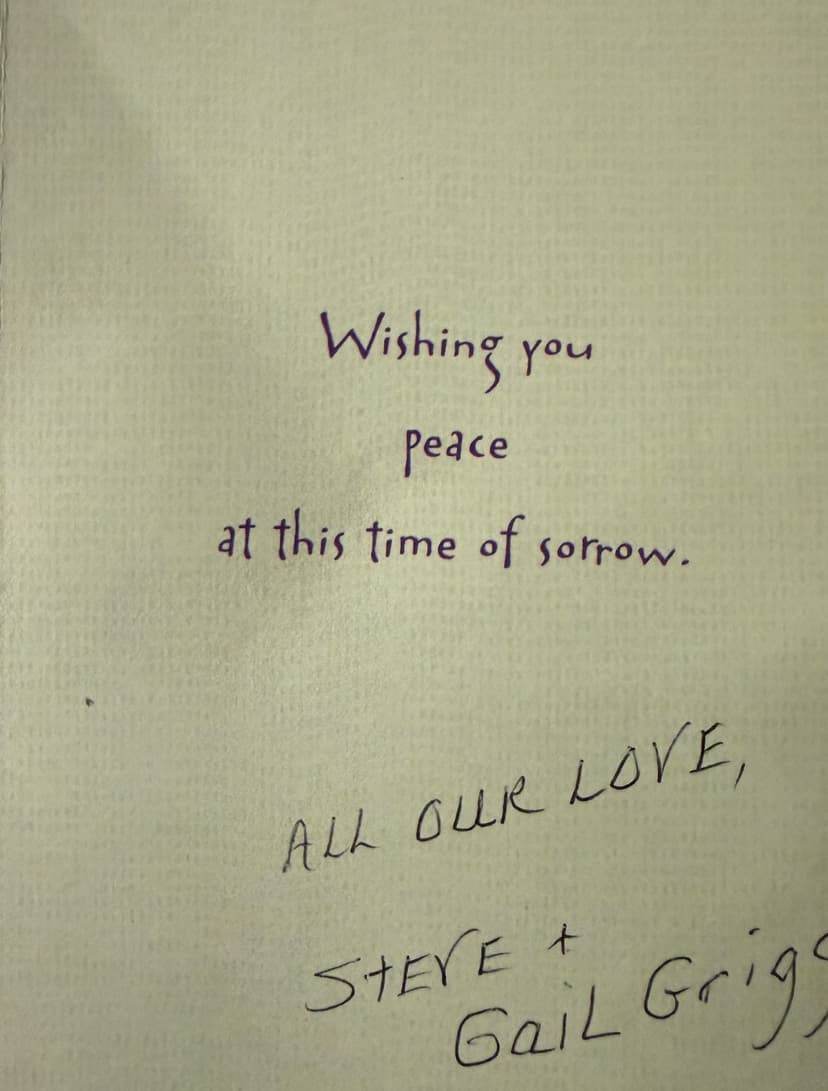 Wishing you
peace
at this time of sorrow.
ALL OUR LOVE,
STEVE +
GaiL